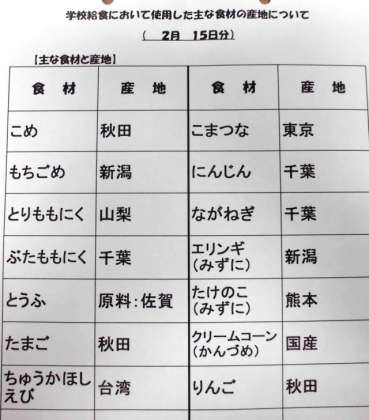 学校給食において使用した主な食材の産地について
( 2月 15日分)
【主な食材と産地】
食 材 産 地 食 材 産 地
こめ 秋田 こまつな 東京
もちごめ 新潟 にんじん 千葉
とりももにく 山梨 ながねぎ 千葉
ぶたももにく 千葉 エリンギ(みずに) 新潟
とうふ 原料:佐賀 たけのこ(みずに) 熊本
たまご 秋田 クリームコーン(かんづめ) 国産
ちゅうかほしえび 台湾 りんご 秋田